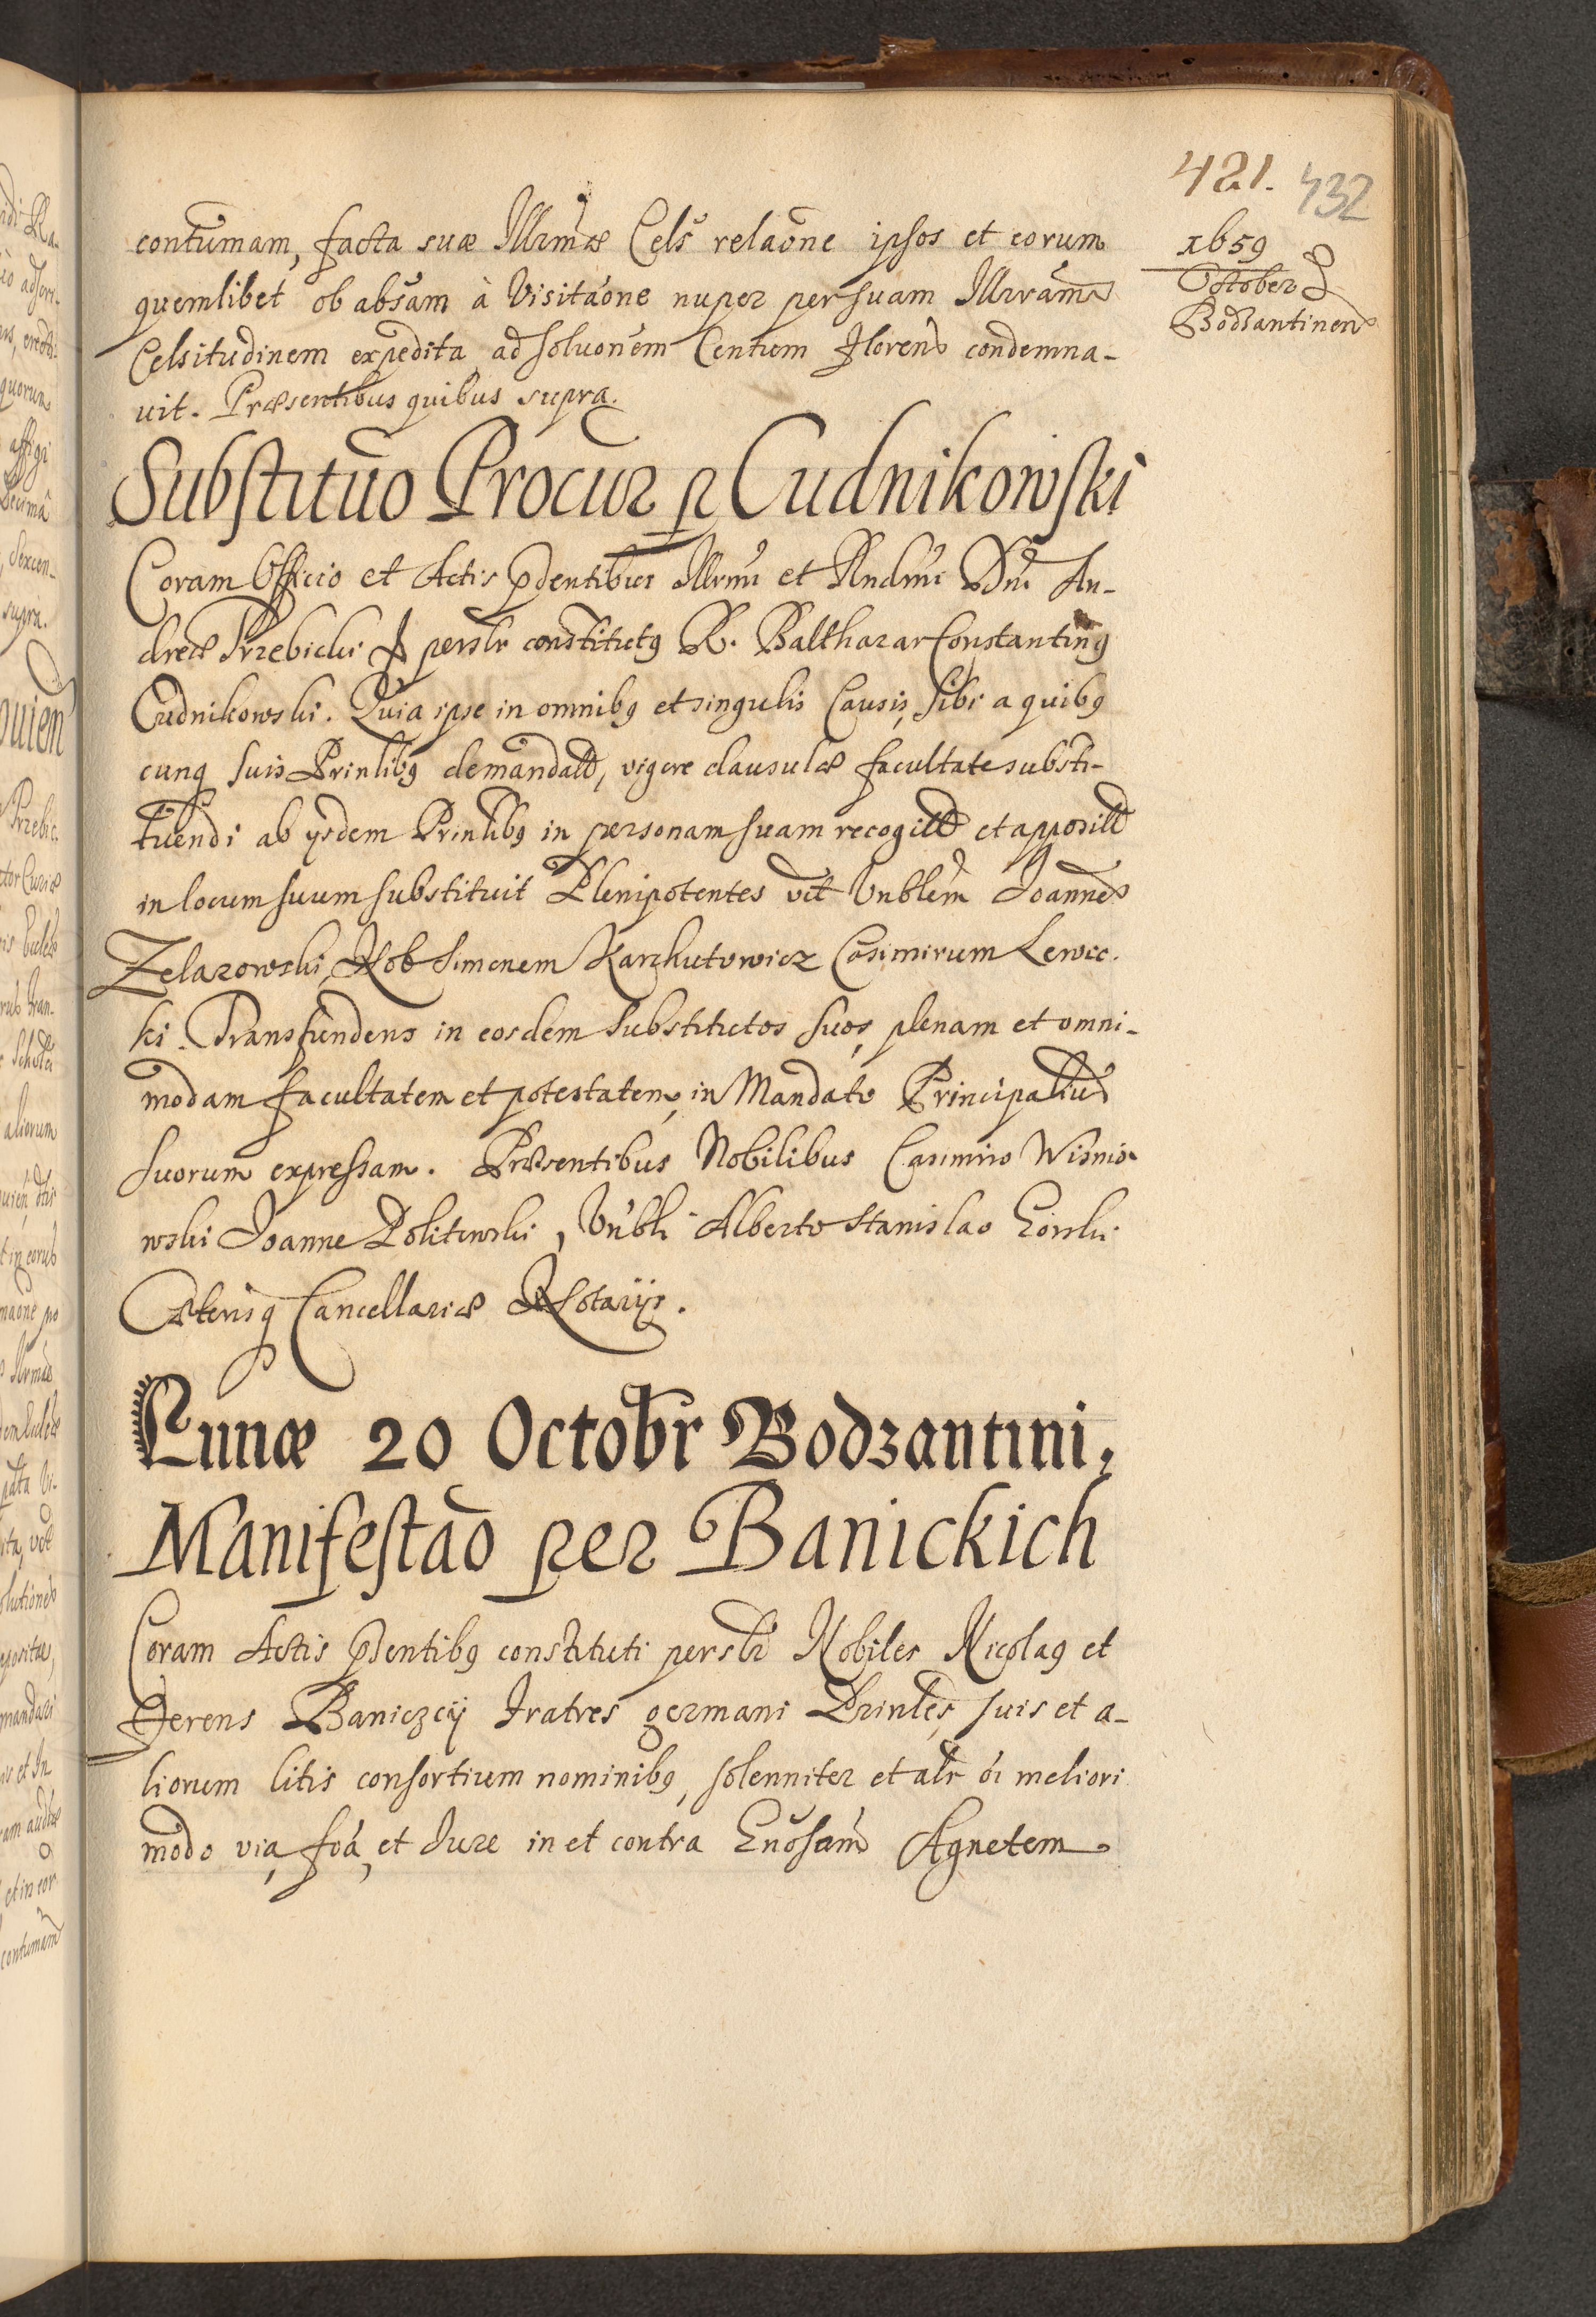 421. 432
1659
October
Bodzantinen
contumam, facta suæ Illrmæ Cels relaõne ipsos et eorum
quemlibet ob absam à Visitaõne nuper per suam Illrmam
Celsitudinem expedita, ad soluonem Centum Floren condemna-
uit. Præsentibus quibus supra.
Substituõ Procur p Cudnikowski
Coram Officio et Actis pdentibus Illrmi et Rndmi Dni An-
dreæ Trzebicki perslr constitutq R. Balthazar Constantinq
Cudnikowski. Quia ipse in omnibq et singulis Causis, sibi a quibq
cunq suis Prinlibq demandatt, vigore clausulæ facultate substi-
tuendi ab ysdem Prinlibq in personam suam recogitt et apposit
in locum suum substituit Plenipotentes vct Vnblem Joannem
Zelazowski, Nob Simonem Karzkutowicz Casimirum Lewic.
ki. Transfundens in eosdem Substitutos suos, plenam et omni-
modam facultatem et potestatem, in Mandato Principalium
suorum expressam. Præsentibus Nobilibus Casimiro Wisnio-
wski Joanne Politowski, Vnbli Alberto Stanislao
Cæterisq Cancellariæ Notarijs.
Lunæ 20 Octobr Bodzantini,
Manifestaõ per Banickich
Coram Actis pdentibq constituti perslr Nobiles Nicolaq et
Ferens Baniczcij Fratres germani Prinles, suis et a-
liorum litis consortium nominibq, solenniter et alr oi meliori
modo via, foa, et Jure in et contra Gnosam Agnetem